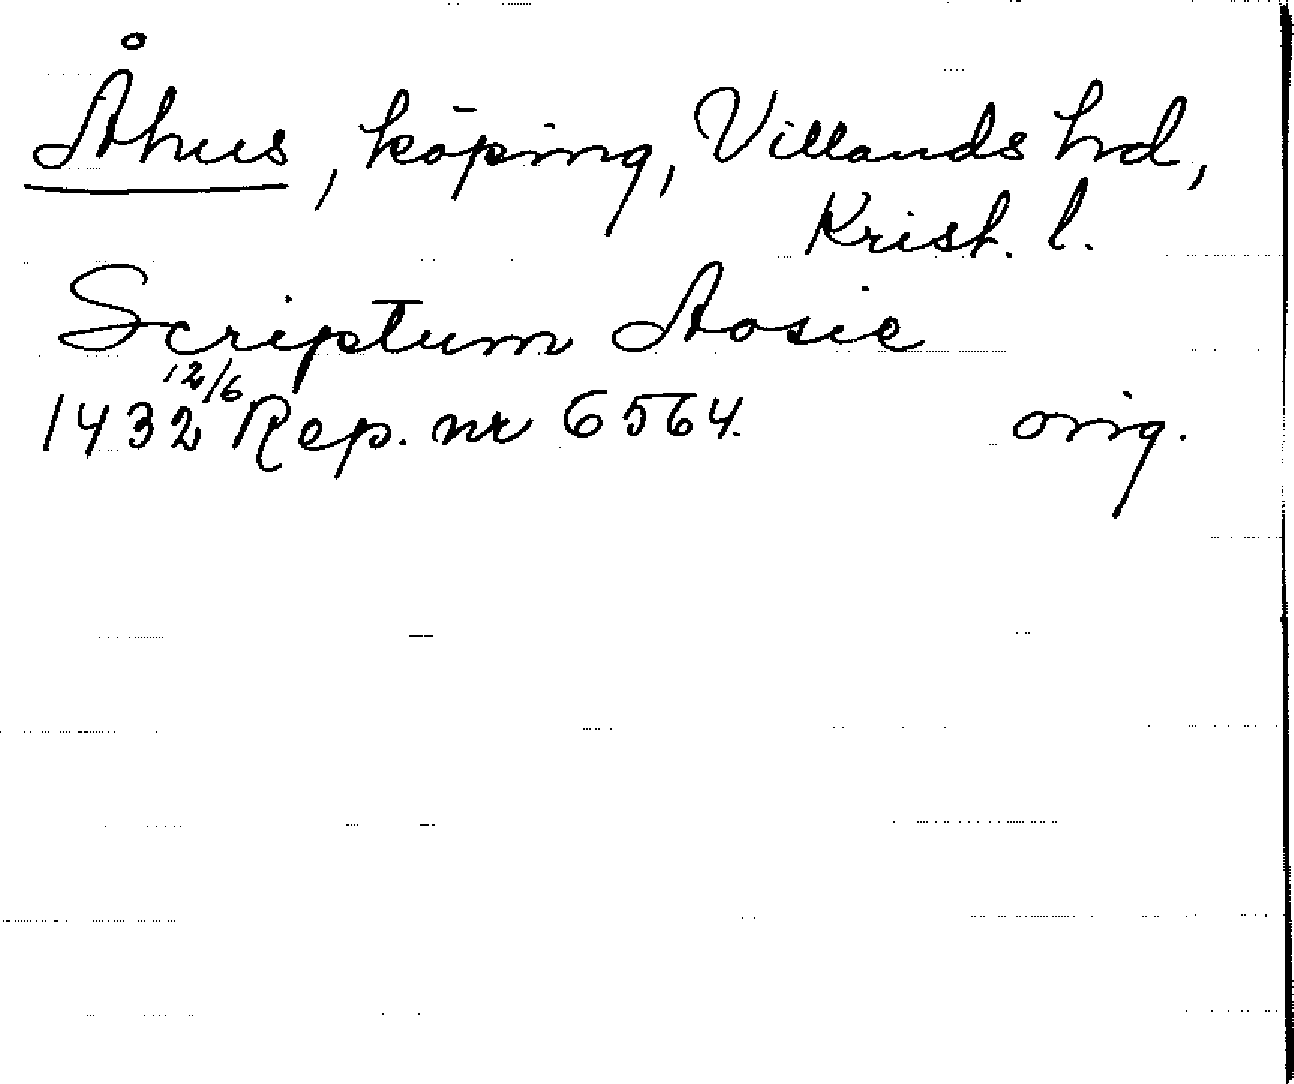 Åhus, köping, Villands hd,
Krist. l.
Scriptum Aosie
1432 12/6 Rep. nr 6564. orig.